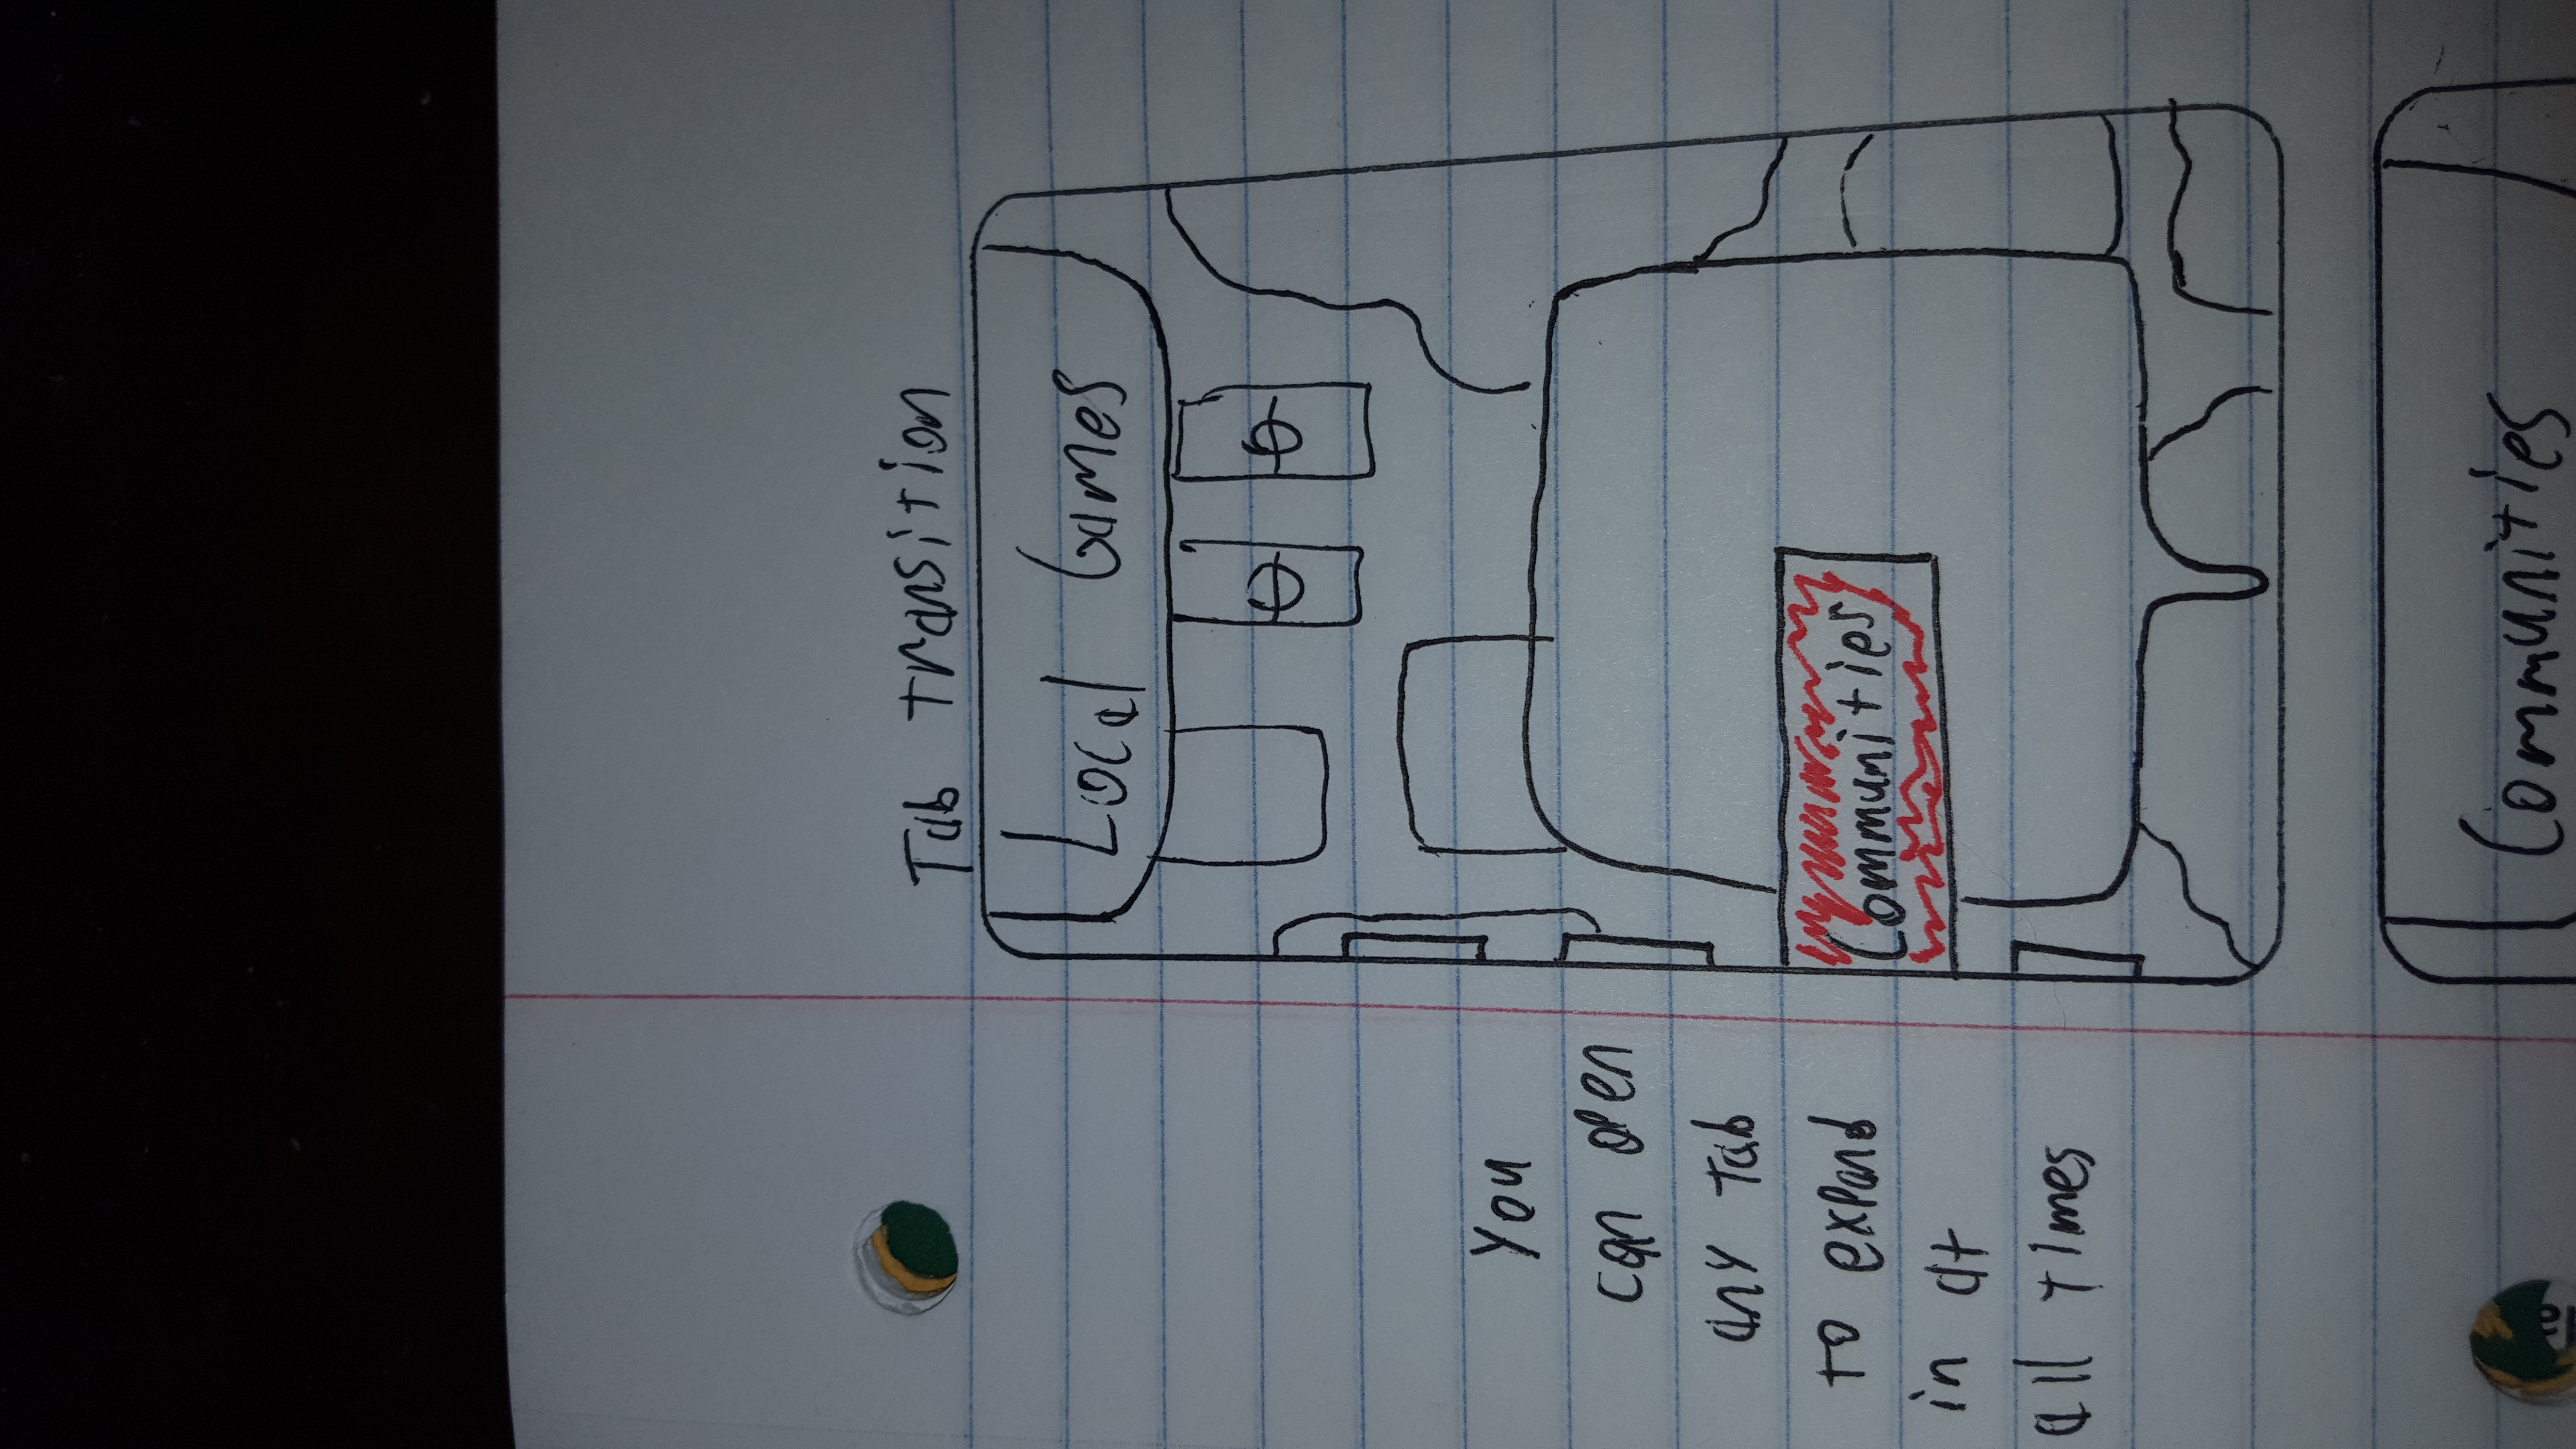 Tab transition
Local Games
You
can open
any tab
to expand
in at
all times
Communities
Communities